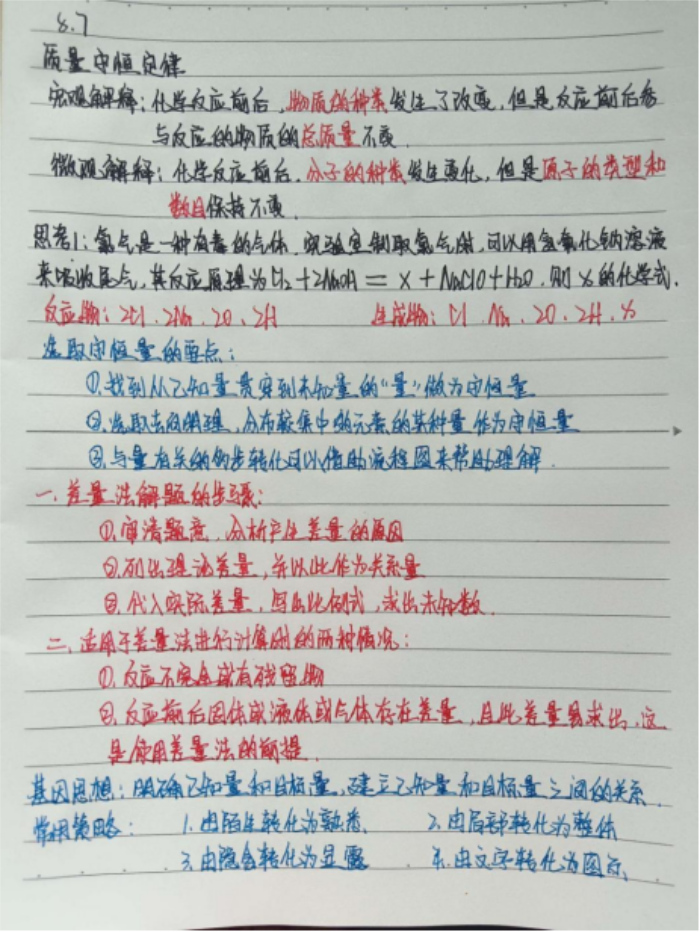 8.7
质量守恒定律
宏观解释：化学反应前后，物质的种类发生了改变，但是反应前后参
与反应的物质的总质量不变．
微观解释：化学反应前后，分子的种类发生变化，但是原子的类型和
数目保持不变．
思考1：氯气是一种有毒的气体．实验室制取氯气时，可以用氢氧化钠溶液
来吸收尾气，其反应原理为Cl₂+2NaOH=X+NaClO+H₂O．则X的化学式．
反应物：2Cl．2Na．2O．2H 生成物：Cl．Na．2O．2H．X
选取守恒量的要点：
①．找到从已知量贯穿到未知量的“量”做为守恒量
②．选取去向明确，分布较集中的元素的某种量作为守恒量
③．与量有关的多步转化可以借助流程图来帮助理解．
一．差量法解题的步骤：
①．审清题意，分析产生差量的原因
②．列出理论差量，并以此作为关系量
③．代入实际差量，写出比例式，求出未知数．
二．适用于差量法进行计算时的两种情况：
①．反应不完全或有残留物
②．反应前后固体或液体或气体存在差量，且此差量易求出，这
是使用差量法的前提．
基因思想：明确已知量和目标量，建立已知量和目标量之间的关系．
常用策略： 1．由陌生转化为熟悉． 2．由局部转化为整体
3．由隐含转化为显露 4．由文字转化为图示．